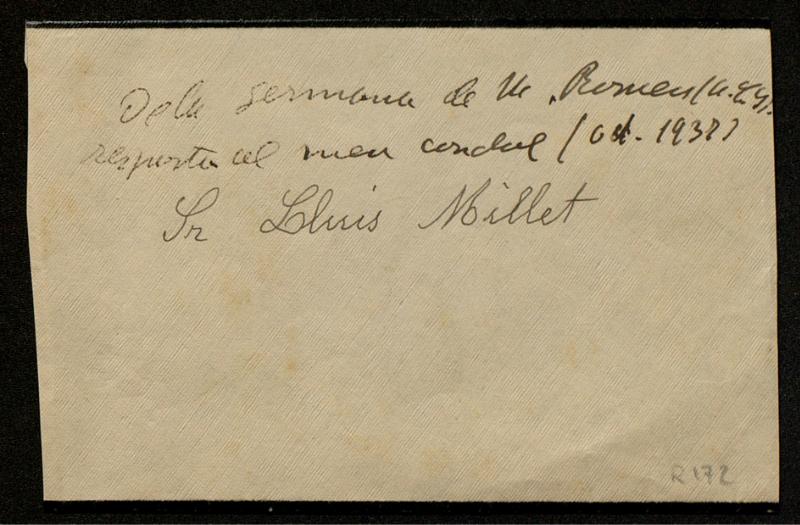 De la germana de M. Romeu (a.C.s).
resposta al meu condol (Oct. 1937)
Sr Lluis Millet
R 172